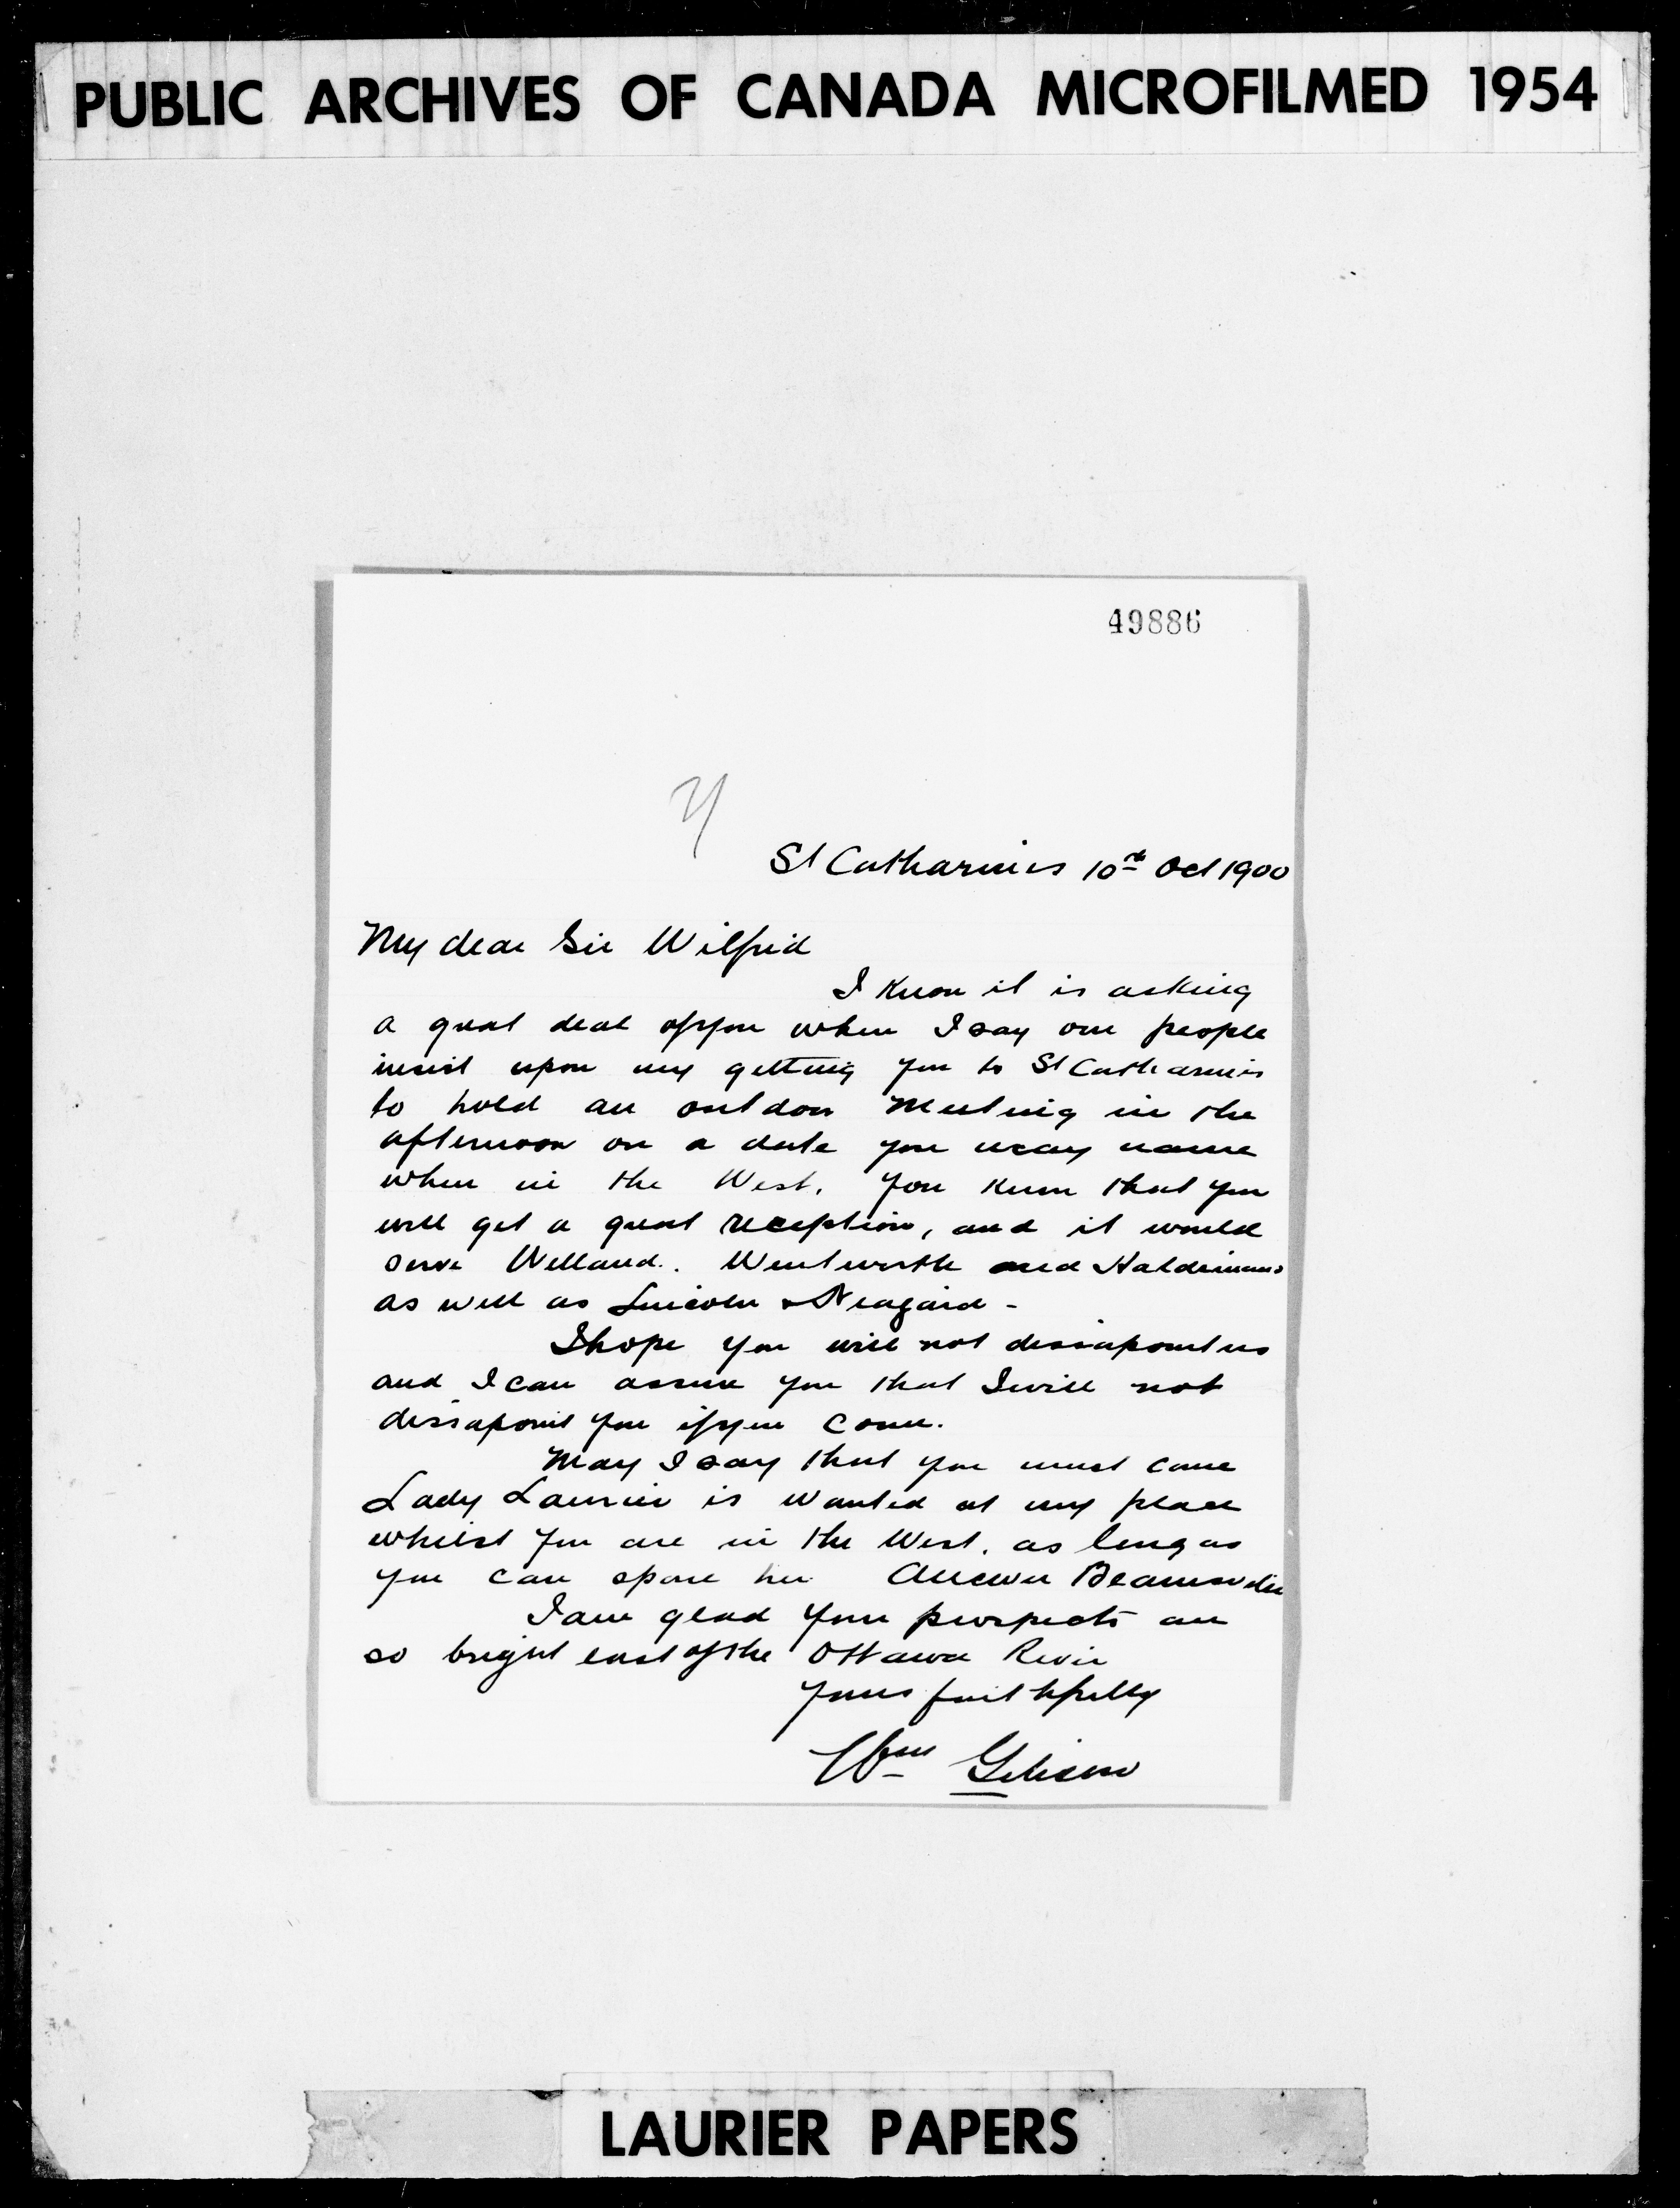 PUBLIC ARCHIVES OF CANADA MICROFILMED 1954
49886
y
St Catharines 10th Oct 1900
My dear Sir Wilfrid
I know it is asking
a great deal of you when I say our people
insist upon my getting you to St Catharines
to hold an outdoor meeting in the
afternoon on a date you may name
when in the West. You know that you
will get a great reception, and it would
serve Welland. Wentworth and Haldimand
as well as Lincoln & Niagara -
I hope you will not dissapoint us
and I can assure you that I will not
dissapoint you if you come.
May I say that you must come
Lady Laurier is wanted at my place
whilst you are in the West. as long as
you can spare her Answer Beamsville
I am glad your prospects are
so bright east of the Ottawa River
Yours faithfully
Wm Gibson
LAURIER PAPERS